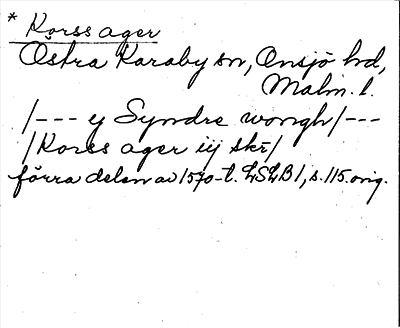 * Korss ager
Östra Karaby sn, Onsjö hd,
Malm. l.
/--- y Syndre wongh/---
/Korss ager iij skr/
förra delen av 1570-t. LSLB 1, s. 115. orig.